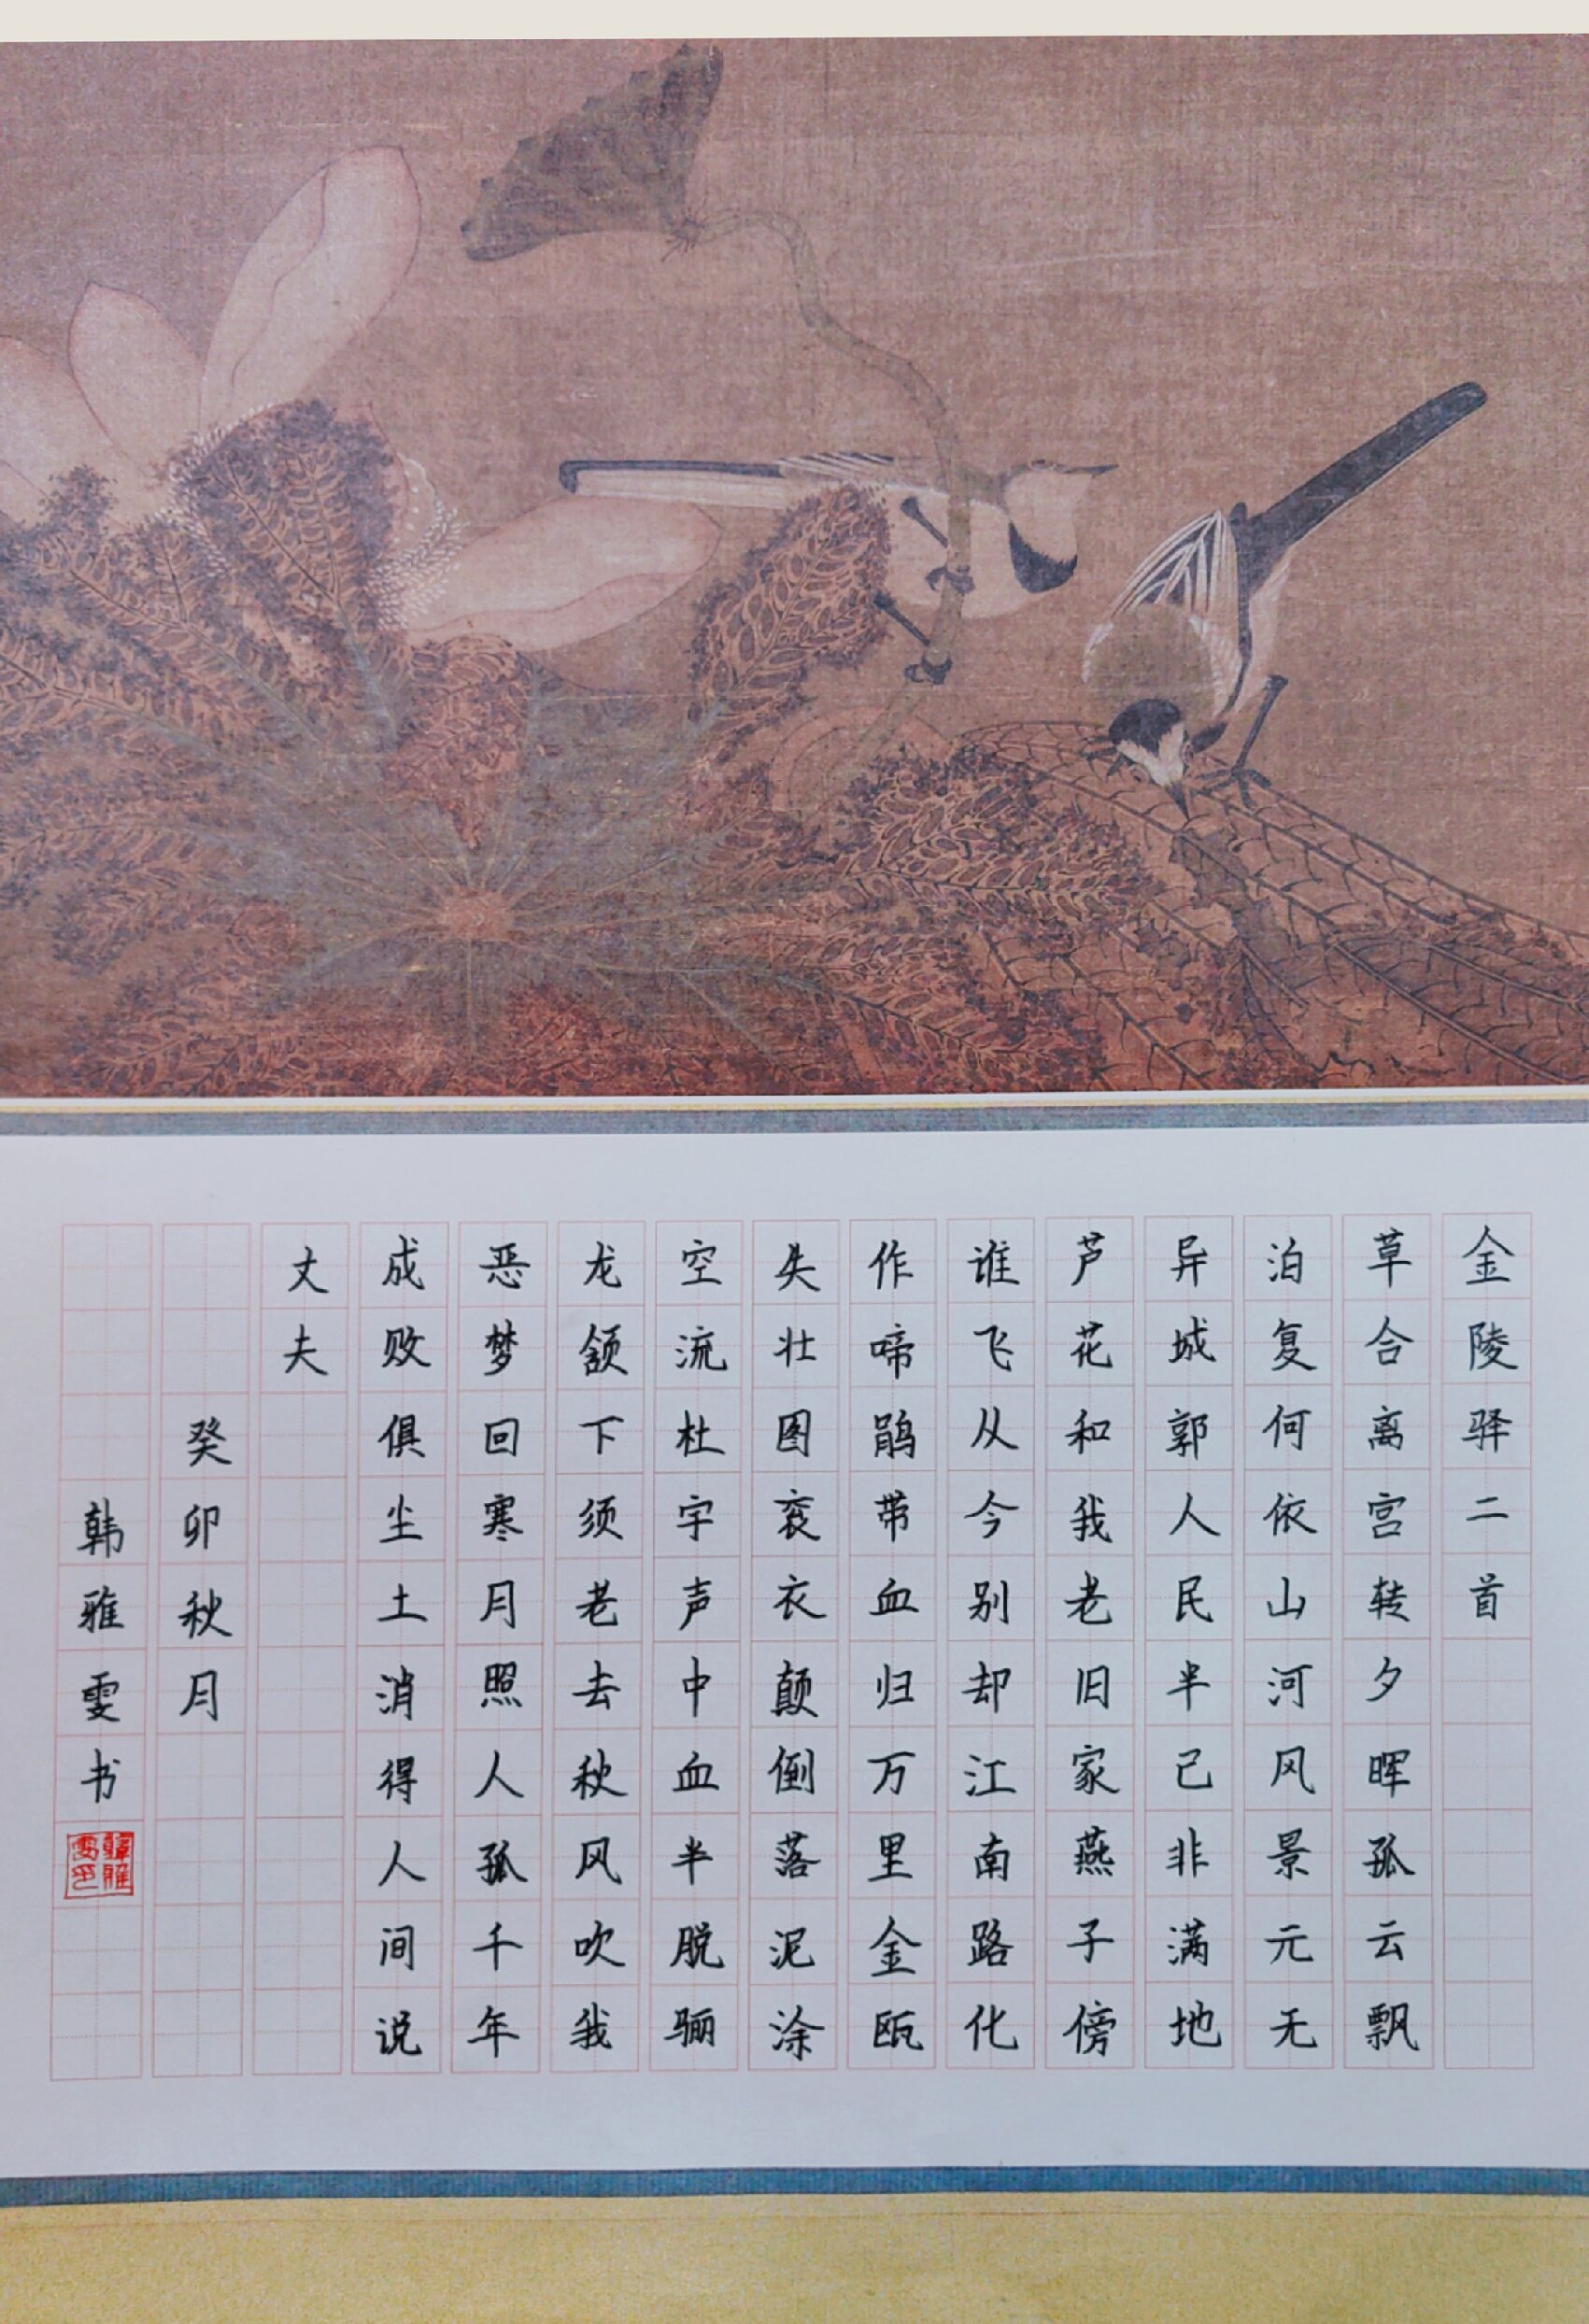 金陵驿二首
草合离宫转夕晖孤云飘
泊复何依山河风景元无
异城郭人民半已非满地
芦花和我老旧家燕子傍
谁飞从今别却江南路化
作啼鹃带血归万里金瓯
失壮图衮衣颠倒落泥涂
空流杜宇声中血半脱骊
龙颔下须老去秋风吹我
恶梦回寒月照人孤千年
成败俱尘土消得人间说
丈夫
癸卯秋月
韩雅雯书
韓雅雯印